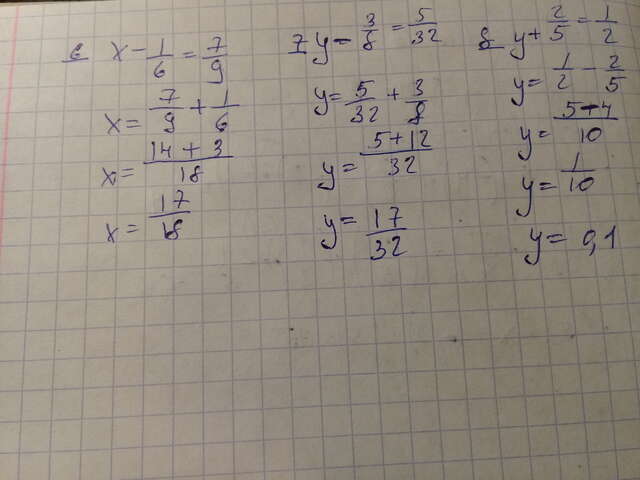 6 x - 1/6 = 7/9
x = 7/9 + 1/6
x = (14 + 3)/18
x = 17/18
7 y - 3/8 = 5/32
y = 5/32 + 3/8
y = (5+12)/32
y = 17/32
8 y + 2/5 = 1/2
y = 1/2 - 2/5
y = (5-4)/10
y = 1/10
y = 0,1